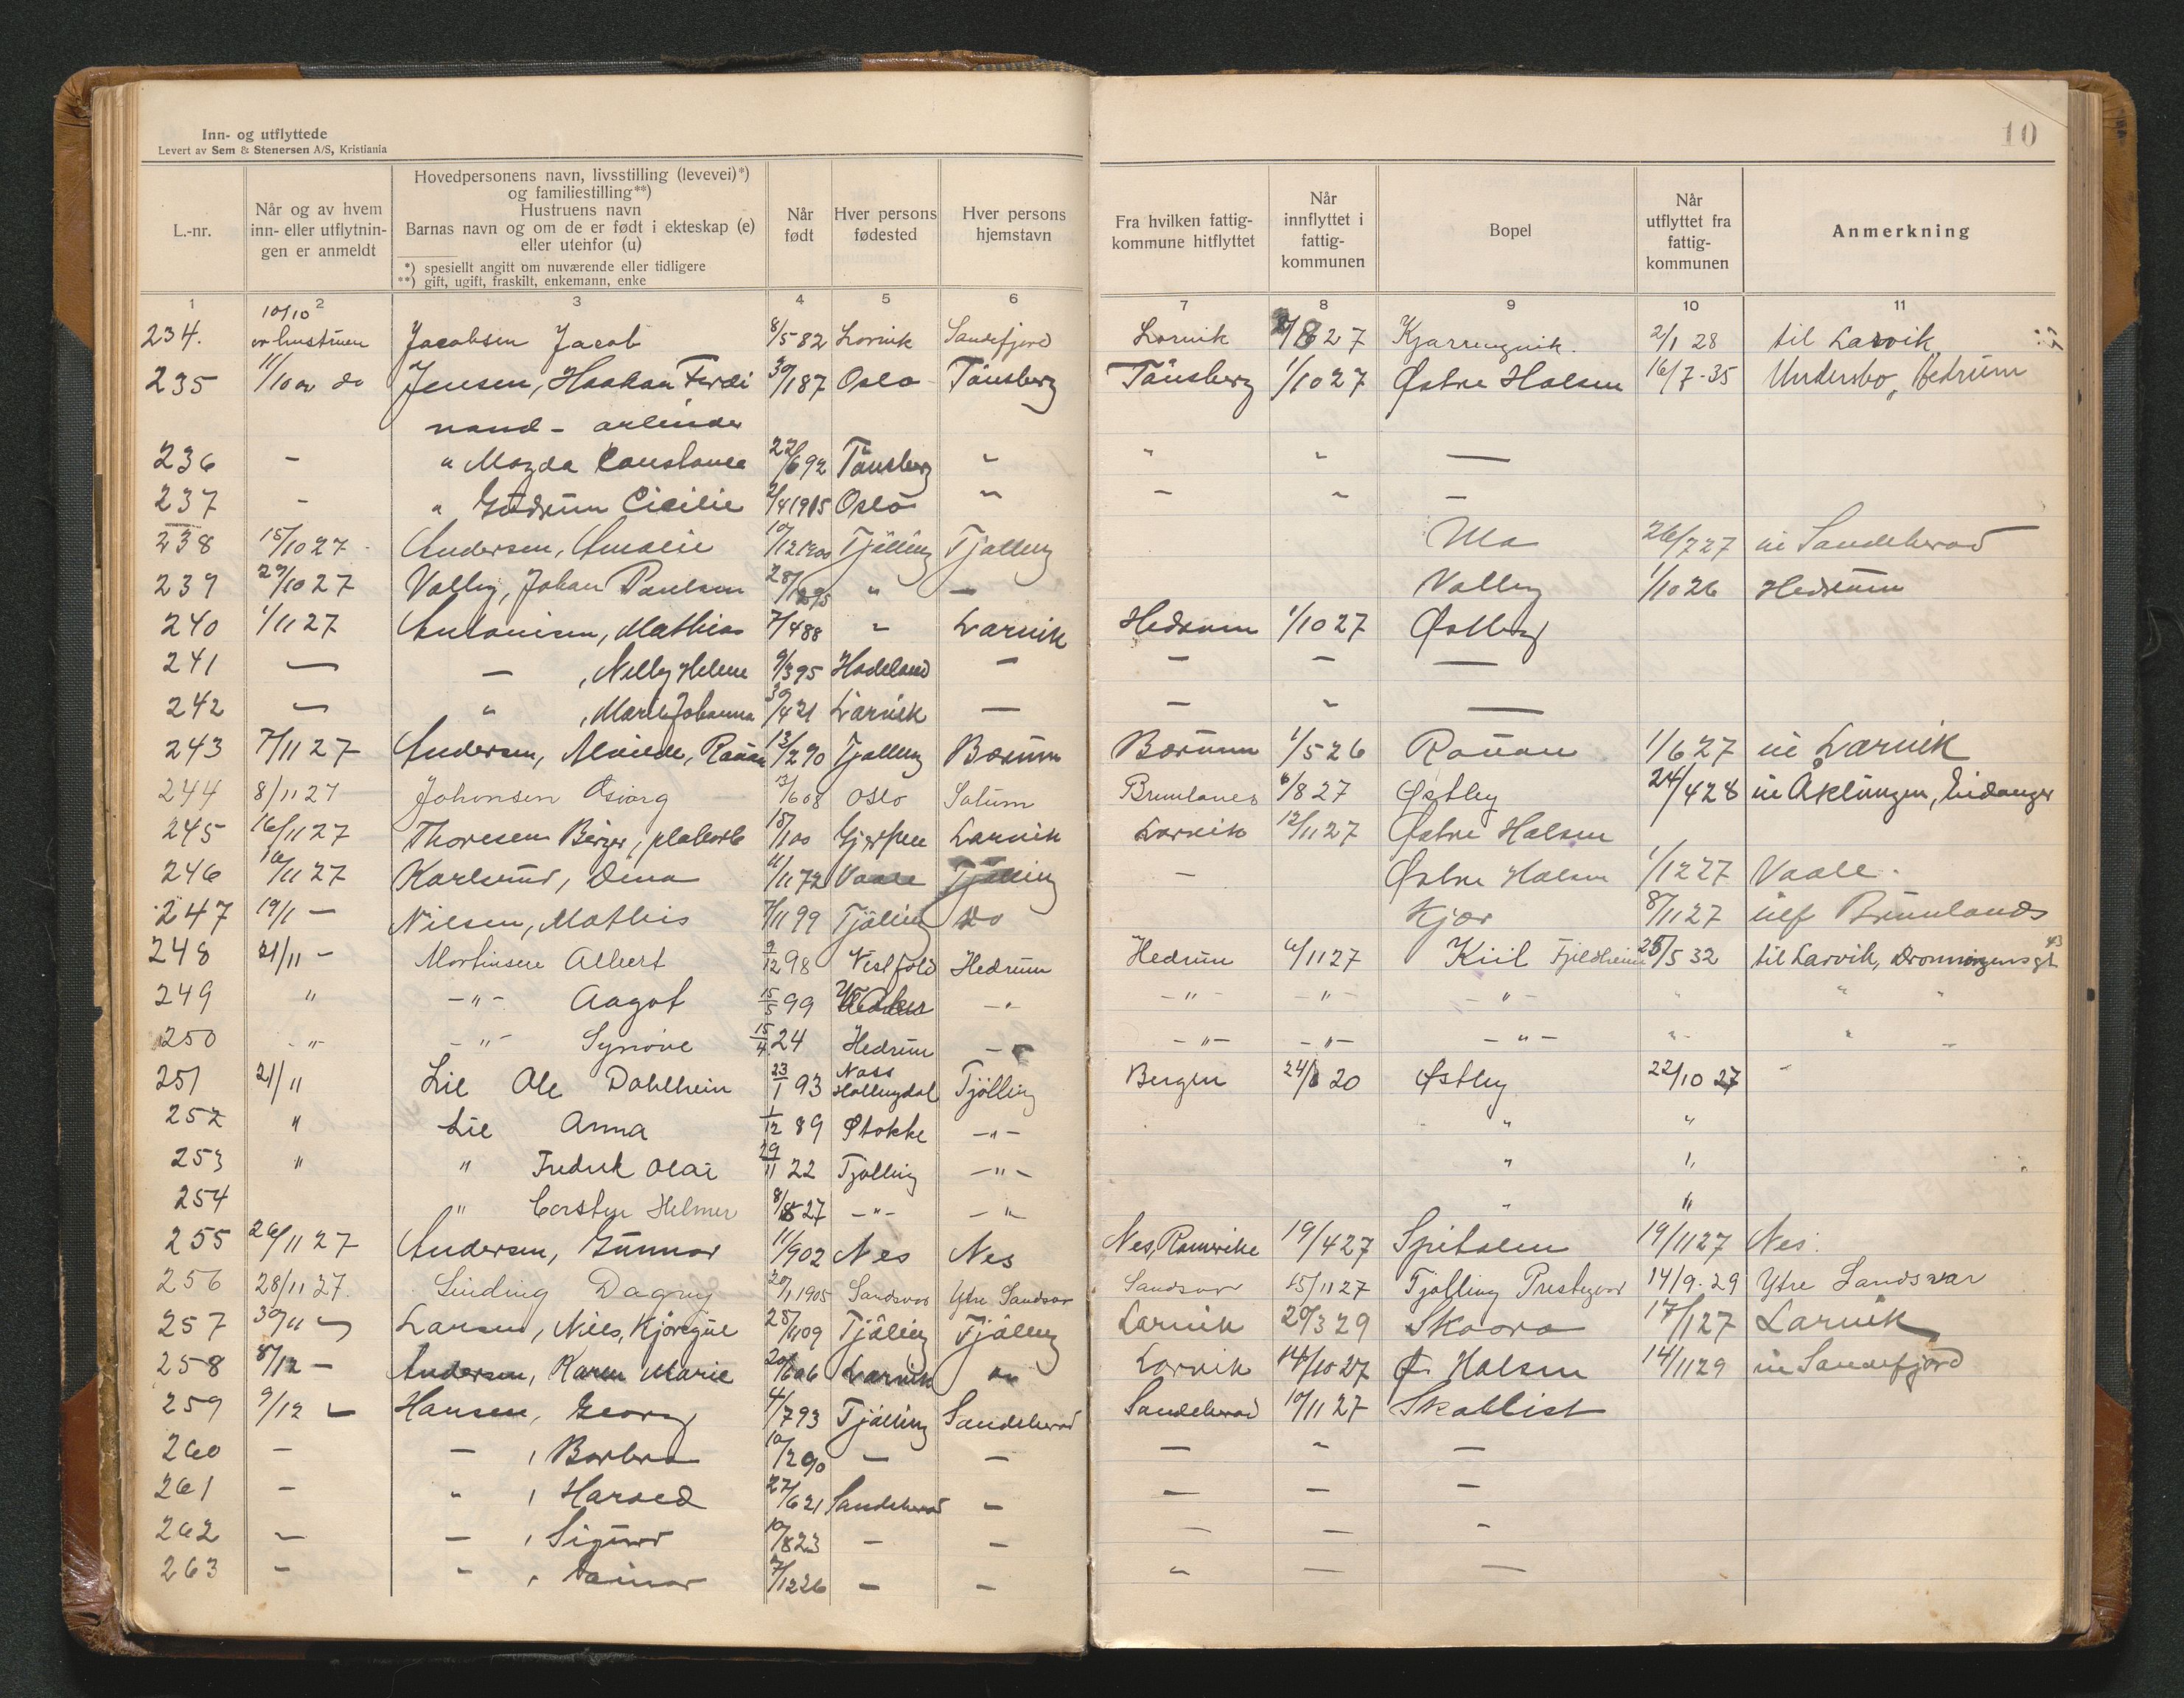 Inn- og utflyttede
Levert av Sem & Stenersen A/S, Kristiania
10
L.-nr.
Når og av hvem inn- eller utflytnin-gen er anmeldt
Hovedpersonens navn, livsstilling (levevei)*)
og familiestilling**)
Hustruens navn
Barnas navn og om de er født i ekteskap (e)
eller utenfor (u)
*) spesiellt angitt om nuværende eller tidligere
**) gift, ugift, fraskilt, enkemann, enke
Når født
Hver persons fødested
Hver persons hjemstavn
Fra hvilken fattig-kommune hitflyttet
Når innflyttet i fattig-kommunen
Bopel
Når utflyttet fra fattig-kommunen
Anmerkning
1 2 3 4 5 6 7 8 9 10 11
234. 10/10 av hustruen Jacobsen Jacob 8/5 82 Larvik Sandefjord Larvik 27 2/1 28 til Larvik
235 11/10 av do Jensen, Haakan Ferdi 30/1 87 Oslo Tönsberg Tönsberg 1/10 27 Østre Halsen 16/7-35 Undersbo, Hedrum
nand - arbeider
236 - " Magda Constance 22/6 92 Tönsberg " " " —
237 - " Gudrun Cicilie 2/4 1915 Oslo " — " —
238 15/10 27 Andersen, Amalie 10/12 1900 Tjölling Tjølling Ula 26/7 27 til Sandeherad
239 29/10 27 Valby, Johan Paulsen 28/1 95 " — Valby 1/10 26 Hedrum
240 1/11 27 Antonisen, Mathias 7/4 88 " Larvik Hedrum 1/10 27 Østby
241 — — , Nelly Helene 9/3 95 Hadeland — — — —
242 — " , Marie Johanna 30/4 21 Larvik — — " —
243 7/11 27 Andersen, Rauan 13/2 90 Tjølling Bærum Bærum 1/5 26 Rauan 1/6 27 til Larvik
244 8/11 27 Johnsen Osvarg 13/6 08 Oslo Solum Brunlanes 6/8 27 Østby 24/4 28 til Åklungen, Eidanger
245 16/11 27 Thoresen Birger, 18/1 00 Gjerpen Larvik Larvik 12/11 27 Østre Halsen
246 10/11 27 Karlsrud, Dina 11/11 72 Vaale Tjölling — Østre Halsen 1/12 27 Vaale.
247 19/1 — Nilsen, Mathis 7/11 99 Tjölling Do Kjær 8/11 27 utf Brunlands
248 21/11 - Martinsen Albert 9/12 98 Vestfold Hedrum Hedrum 6/11 27 Kiil Fjeldheim 25/5 32 til Larvik, Dronningensgt 43
249 " -"- Aagot 15/5 99 -" -"- -"- -"- " " "
250 -"- -"- Synöve 15/4 24 Hedrum - -"- -"- -"- "- " —
251 21/11 Lie Ole Dahlhein 23/1 93 Nass Hallingdal Tjölling Bergen 20 Østby 22/10 27 "
252 " Lie Anna 1/12 89 Stokke -"- " "
253 " " Fredrik Olai 29/11 22 Tjølling -"- " "
254 " Carsten Helmer 8/8 27 -"- -"- " "
255 26/11 27 Andersen, Gunnar 11/9 02 Nes Nes Nes, Romerike 19/4 27 Spitalen 19/11 27 Nes.
256 28/11 27. Sinding Dagny 20/1 1905 Sandsvær Ytre Sandsvær Sandsvær 15/11 27 Tjølling Prestegård 14/9-29 Ytre Sandsvær
257 30/11 — Larsen, Niels, 09 Tjölling Tjölling Larvik 20/3 29 Skaara 17/1 27 Larvik
258 8/12 — Andersen, Karen Marie 20/6 06 Larvik Larvik 14/10 27 Ø. Halsen 14/11 29 til Sandefjord
259 9/12 — Hansen, Georg 4/7 93 Tjölling Sandeherad Sandeherad 10/11 27 Skallist
260 — — , Borbra 10/2 90 — — — " —
261 — " , Harald 27/6 21 Sandeherad — — — —
262 — — , Sigurd 10/8 23 — — — — —
263 — " , 7/12 26 — — " — —